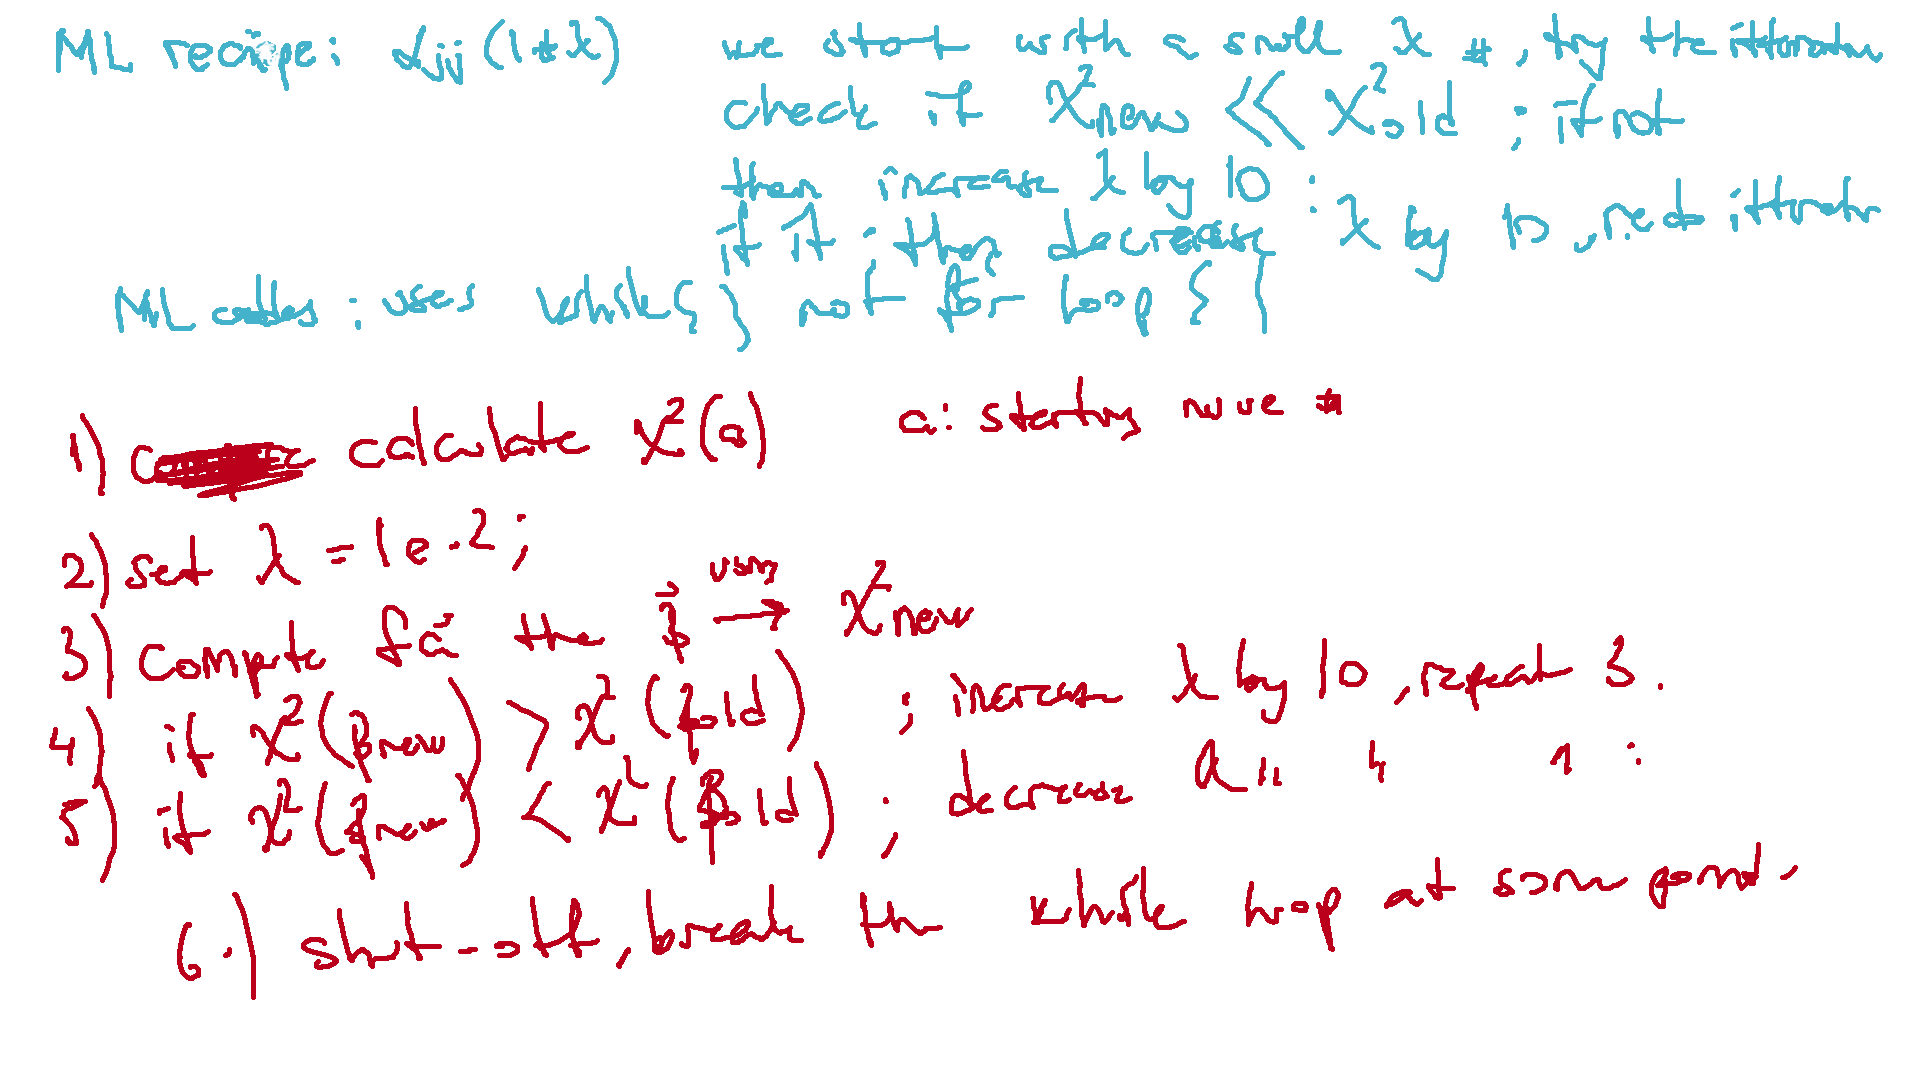 ML recipe: αjj (1+λ) we start with a small λ #, try the itteration
check if χ²new << χ²old ; if not
then increase λ by 10 :
if it ; then decrease λ by 10, redo itteration
ML codes : uses while{ } not for loop { }
1) calculate χ²(a) a: starting #
2) set λ = 1e-2;
3) compute the β⃗ using → χ²new
4) if χ²(βnew) > χ²(βold) ; increase λ by 10, repeat 3.
5) if χ²(βnew) < χ²(βold) ; decrease
6.) shut-off, break the while loop at some point.